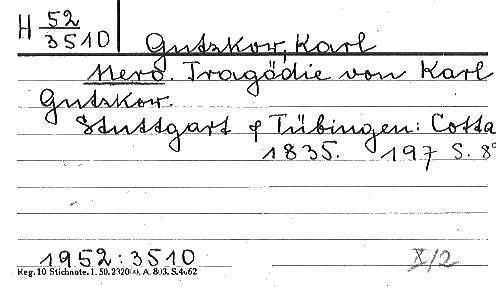 H 52/3510
Gutzkow, Karl
Nero. Tragödie von Karl
Gutzkow.
Stuttgart & Tübingen: Cotta
1835. 197 S. 8°
1952:3510 X/2
Reg. 10 Stichnote. 1. 50. 2320 A. 803. S. 4.62